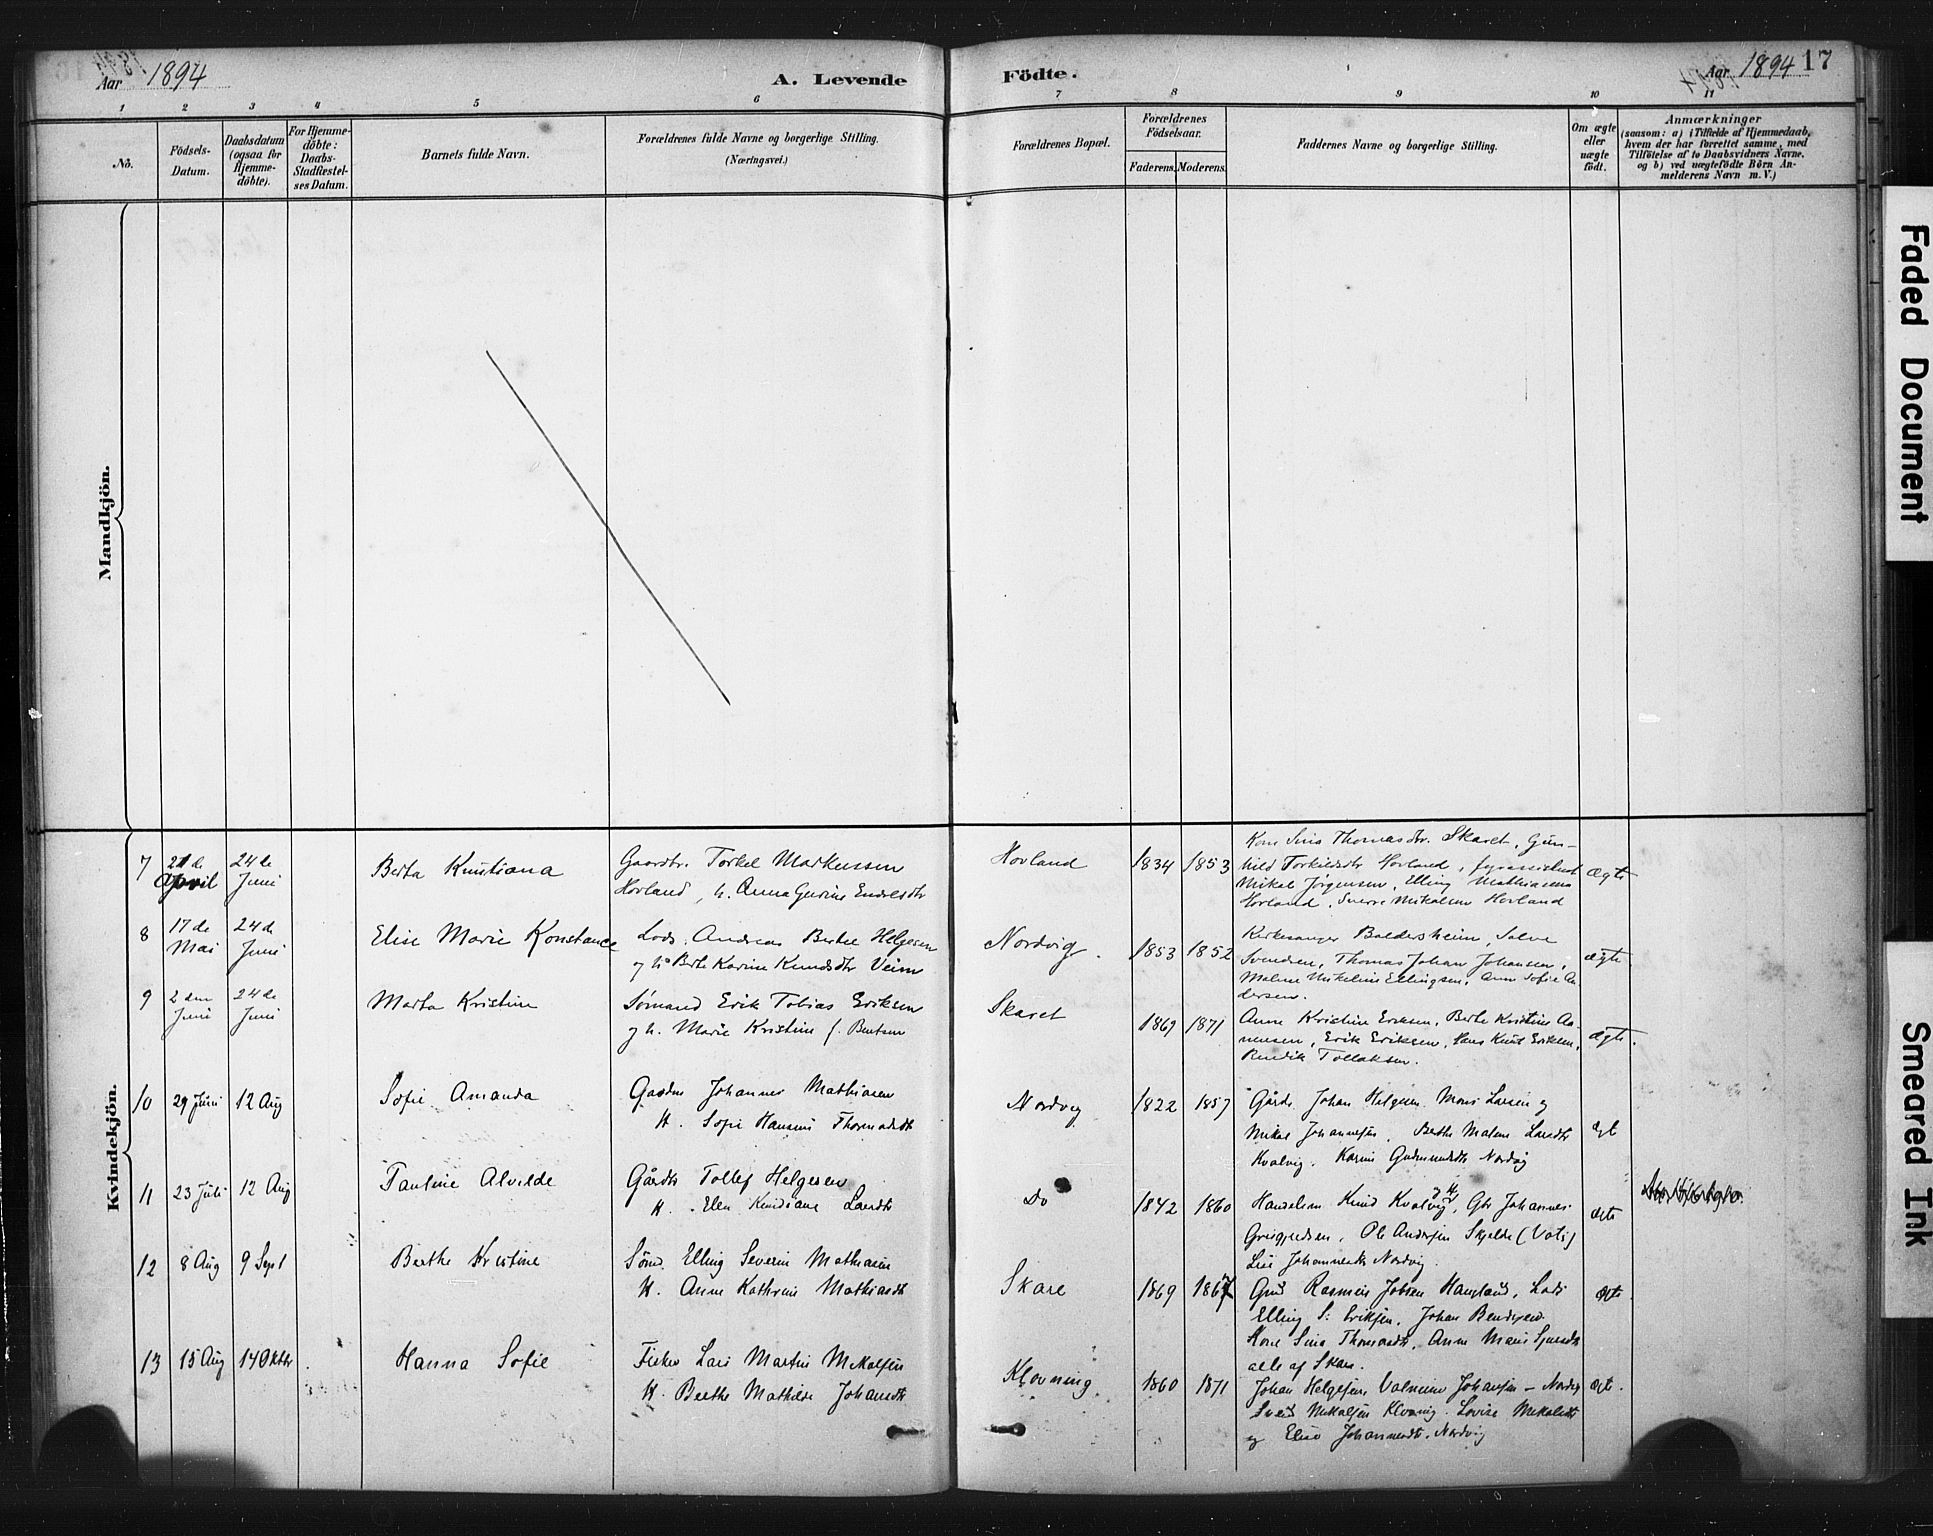 Aar 1894
A. Levende Födte.
Aar 1894 17
1 2 3 4 5 6 7 8 9 10 11
No.
Födsels-
Datum.
Daabsdatum
(ogsaa for
Hjemme-
döbte).
For Hjemme-
döbte:
Daabs-
Stadfæstel-
ses Datum.
Barnets fulde Navn.
Forældrenes fulde Navne og borgerlige Stilling.
(Næringsvei.)
Forældrenes Bopæl.
Forældrenes
Födselsaar.
Faderens. Moderens.
Faddernes Navne og borgerlige Stilling.
Om ægte
eller
uægte
födt.
Anmærkninger
(saasom: a) i Tilfælde af Hjemmedaab,
hvem der har forrettet samme, med
Tilföielse af to Daabsvidners Navne,
og b) ved uægtefödte Börn An-
melderens Navn m. V.)
Mandkjön.
Kvindekjön.
7
21 de
April
24 de
Juni
Berta Kristiana
Gaardbr. Torkel Markussen
Hovland, h. Anna Gurine Endresdtr
Hovland
1834 1853
Kone Sina Thomasdtr. Skaret, Gun-
hild Torkildsdtr Hovland, fyrassistent
Mikal Jørgensen, Elling Mathiasen
Hovland, Sverre Mikalsen Hovland
ægte
8
17 de
Mai
24 de
Juni
Elise Marie Konstance
Lods. Andreas Bertel Helgesen
og h. Berte Karine Knudsdtr Veim
Nordvig.
1853 1852
Kirkesanger Baldersheim, Salve
Svendsen, Thomas Johan Johansen,
Malene Mikeline Ellingsen, Ann Sofie An-
dersen.
ægte
9
2 den
Juni
24 de
Juni
Marta Kristine
Sømand Erik Tobias Eriksen
og h. Marie Kristine f. Bentsen
Skaret
1869 1871
Anne Kristine Eriksen, Berte Kristine As-
mensen, Erik Eriksen, Hans Knut Eriksen,
Rendik Tollaksen.
ægte.
10
29 Juni
12 Aug
Sofie Amanda
Gaardm Johannes Mathiasen
H. Sofie Hansine Thormodsdt
Nordvig
1822 1857
Gårdb. Johan Helgesen Mons Larsen og
Mikal Johannesen, Berthe Malene Larsdtr
Kvalvig. Karine Gudmundsdtr Nordvig
ægt
11
23 Juli
12 Aug
Pauline Alvilde
Gårdb Tollef Helgesen
H. Elen Kundiane Larsdtr
Do
1842 1860
Handelsm Knud Kvalvig og H, Gbr Johannes
Ole Andersen Skjelde (Vats)
Lise Johannesdtr Nordvig.
ægte
12
8 Aug
9 Sept
Berthe Kristine
Sömd. Elling Severin Mathiasen
H. Anne Kathrine Mathiasdtr
Skare
1869 1867
Gmd Rasmus Jobsen Haugland, Lods
Elling S. Eriksen, Johan Bendixen
Kone Sina Thomasdtr, Anne Marie Sjursdtr
alle af Skare.
ægte
13
15 Aug
14 Oktbr
Hanna Sofie
Fisker Lars Martin Mikalsen
H. Berthe Mathilde Johansdtr
Klovning
1860 1871
Johan Helgesen Valnum Johansen – Nordvig
Svend Mikalsen Klovning. Lovise Mikalsdtr
og Elise Johannesdtr. Nordvig
ægte.
Faded Document
Smeared Ink